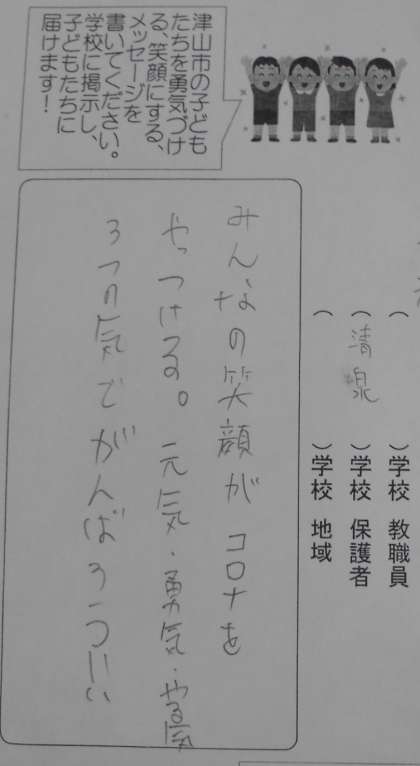 津山市の子ども
たちを勇気づけ
る、笑顔にする、
メッセージを
書いてください。
学校に掲示し、
子どもたちに
届けます！
（　　）学校 教職員
（清泉）学校 保護者
（　　）学校 地域
みんなの笑顔がコロナを
やっつける。元気・勇気・やる気
3つの気でがんばろうっ!!